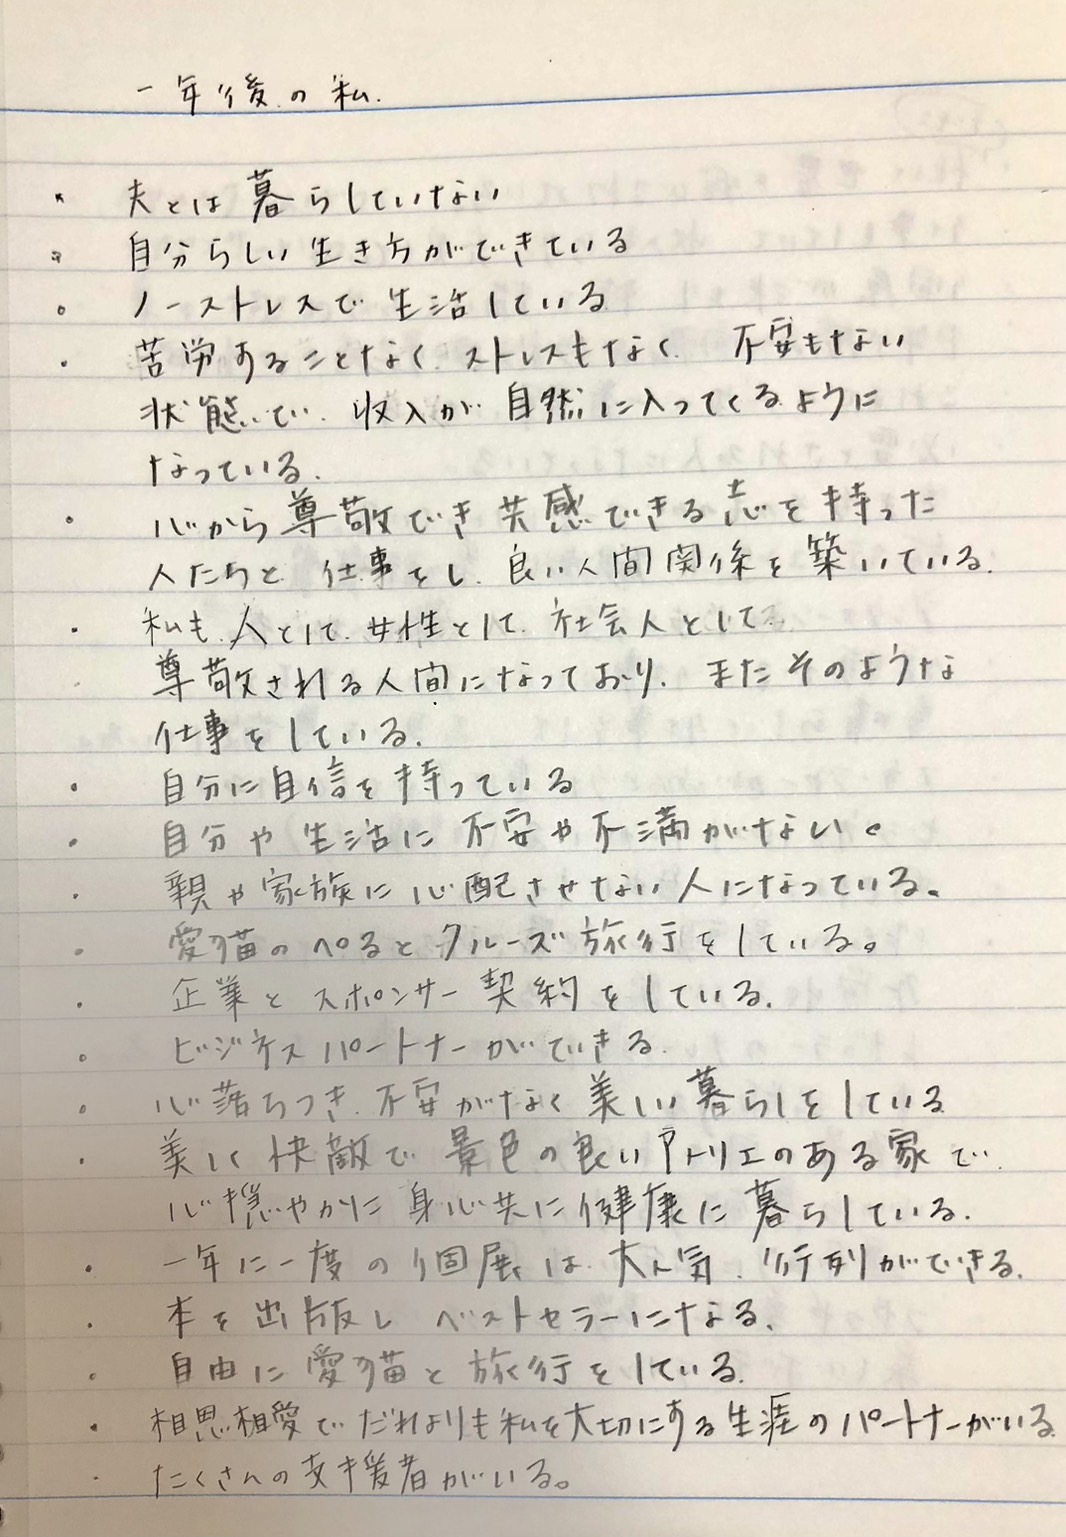 一年後の私.
・ 夫とは暮らしていない
・ 自分らしい生き方ができている
・ ノーストレスで生活している
・ 苦労することなく.ストレスもなく. 不安もない
状態で. 収入が自然に入ってくるように
なっている.
・ 心から尊敬でき共感できる志を持った
人たちと 仕事をし. 良い人間関係を築いている.
・ 私も.人として.女性として.社会人として
尊敬される人間になっており. またそのような
仕事をしている.
・ 自分に自信を持っている
・ 自分や生活に不安や不満がない。
・ 親や家族に心配させない人になっている。
・ 愛猫のぺるとクルーズ旅行をしている。
・ 企業とスポンサー契約をしている.
・ ビジネスパートナーができる.
・ 心落ちつき.不安がなく美しい暮らしをしている
・ 美しく快敵で景色の良いアトリエのある家で
心穏やかに身心共に健康に暮らしている.
・ 一年に一度の個展は大人気.行列ができる.
・ 本を出版しベストセラーになる.
・ 自由に愛猫と旅行をしている.
・ 相思相愛でだれよりも私を大切にする生涯のパートナーがいる.
・ たくさんの支援者がいる。